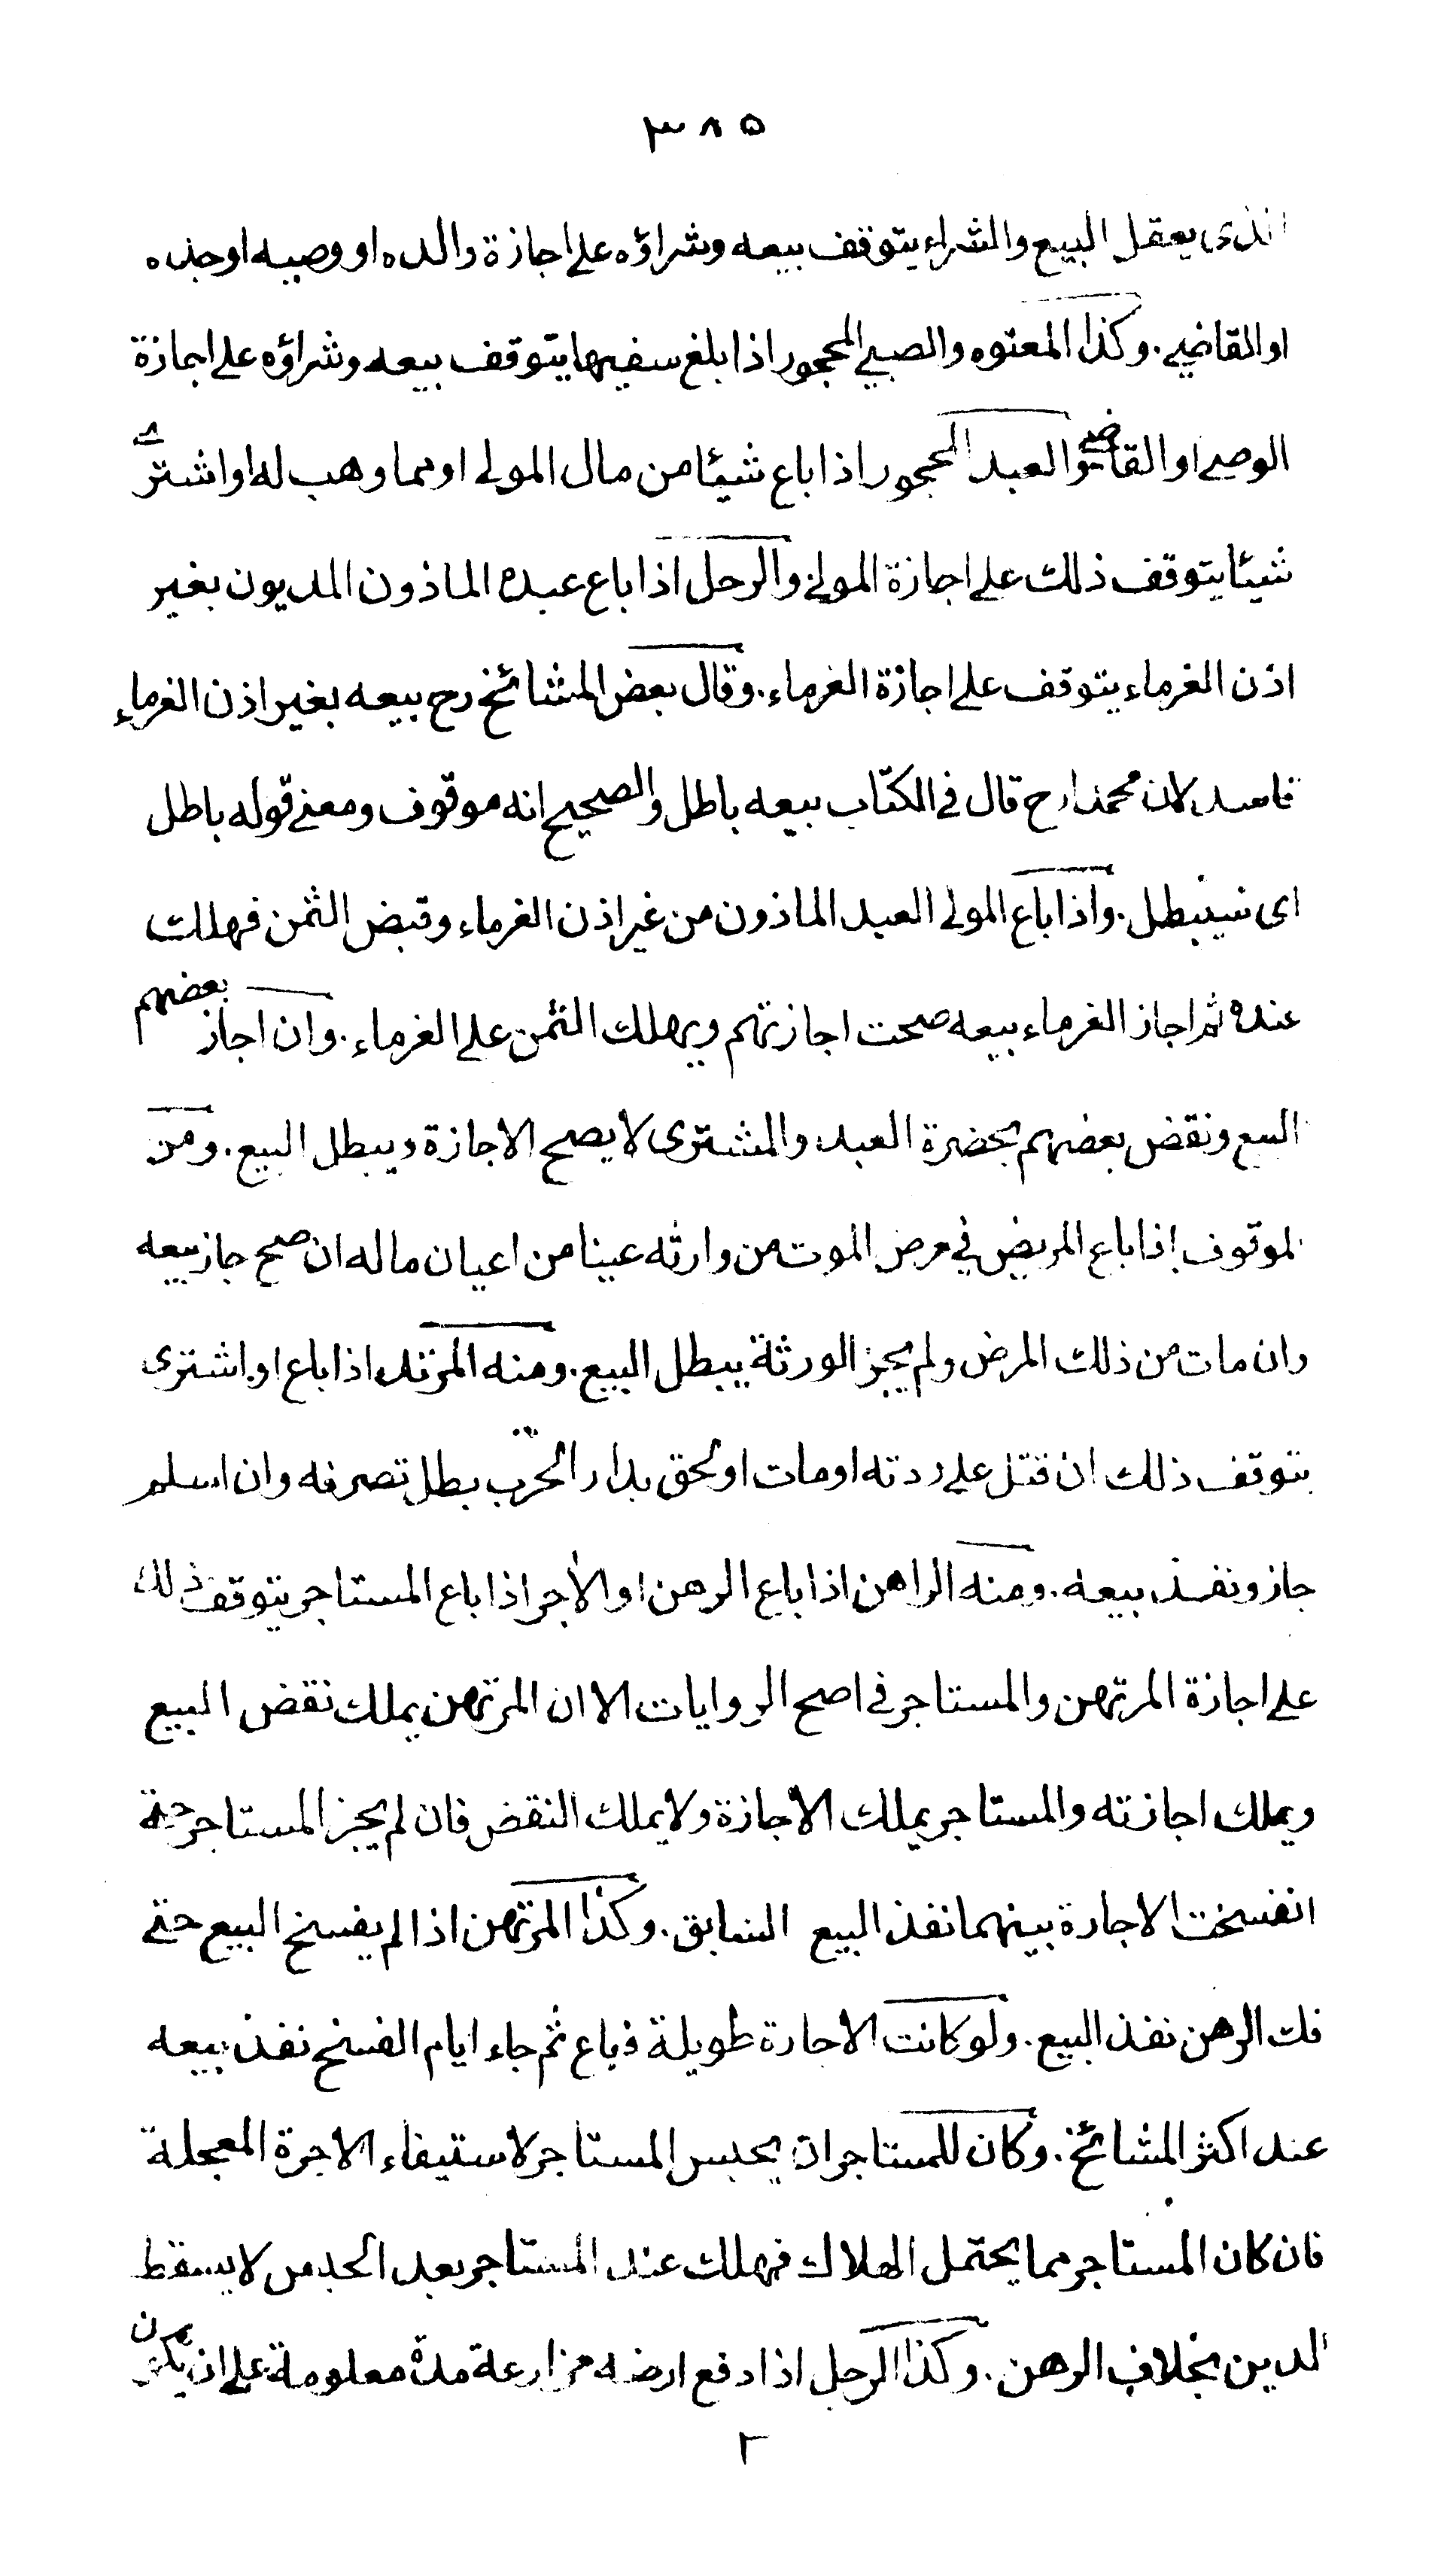 ٣٨٥
الذى يعقل البيع والشراء يتوقف بيعه وشراؤه على اجازة والده او وصيه او جده
او القاضي. وكذا المعتوه والصبي المحجور اذا بلغ سفيها يتوقف بيعه وشراؤه على اجازة
الوصى او القاضي والعبد المحجور اذا باع شيئا من مال المولى او مما وهب له او اشترى
شيئا يتوقف ذلك على اجازة المولى والرجل اذا باع عبده الماذون المديون بغير
اذن الغرماء يتوقف على اجازة الغرماء. وقال بعض المشائخ رح بيعه بغير اذن الغرماء
فاسد لان محمدا رح قال فى الكتاب بيعه باطل والصحيح انه موقوف ومعنى قوله باطل
اى سيبطل. واذا باع المولى العبد الماذون من غير اذن الغرماء وقبض الثمن فهلك
عنده ثم اجاز الغرماء بيعه صحت اجازتهم ويهلك الثمن على الغرماء. وان اجاز بعضهم
البيع ونقض بعضهم بحضرة العبد والمشترى لا يصح الاجازة ويبطل البيع. ومن
الموقوف اذا باع المريض في مرض الموت من وارثه عينا من اعيان ماله ان صح جاز بيعه
وان مات من ذلك المرض ولم يجز الورثة يبطل البيع. ومنه المرتد اذا باع او اشترى
يتوقف ذلك ان قتل على ردته او مات او لحق بدار الحرب بطل تصرفه وان اسلم
جاز ونفذ بيعه. ومنه الراهن اذا باع الرهن او الآجر اذا باع المستاجر يتوقف ذلك
على اجازة المرتهن والمستاجر فى اصح الروايات الا ان المرتهن يملك نقض البيع
ويملك اجازته والمستاجر يملك الاجازة ولا يملك النقض فان لم يجز المستاجر حتى
انفسخت الاجارة بينهما نفذ البيع السابق. وكذا المرتهن اذا لم يفسخ البيع حتى
فك الرهن نفذ البيع. ولو كانت الاجارة طويلة فباع ثم جاء ايام الفسخ نفذ بيعه
عند اكثر المشائخ. وكان للمستاجر ان يحبس المستاجر لاستيفاء الاجرة المعجلة
فان كان المستاجر مما يحتمل الهلاك فهلك عند المستاجر بعد الحبس لا يسقط
الدين بخلاف الرهن. وكذا الرجل اذا دفع ارضه مزارعة مدة معلومة على ان يكون
٢